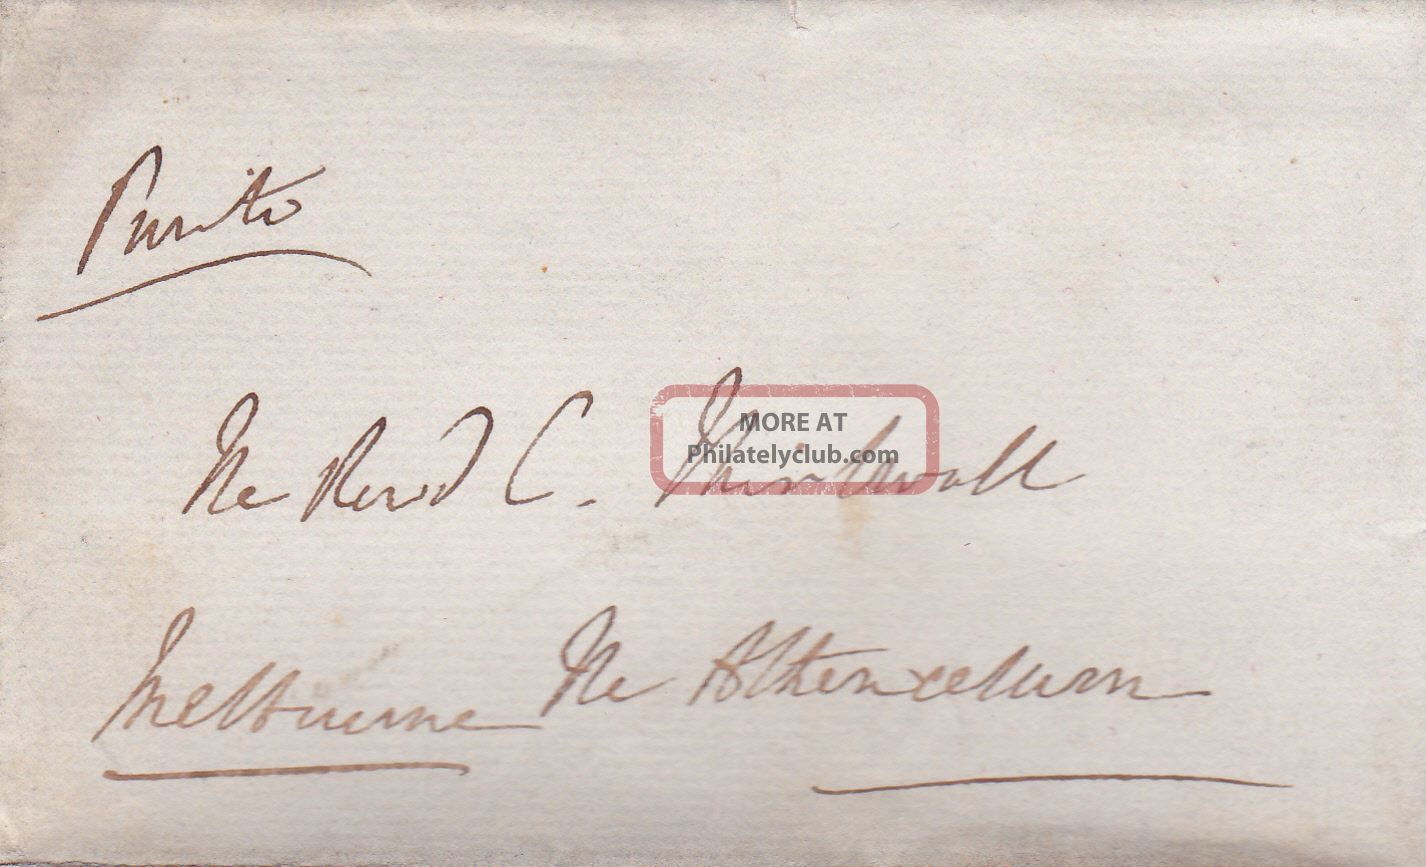 Private
The Revd C. Thirlwall
MORE AT
Philatelyclub.com
Melbourne The Athenaeum